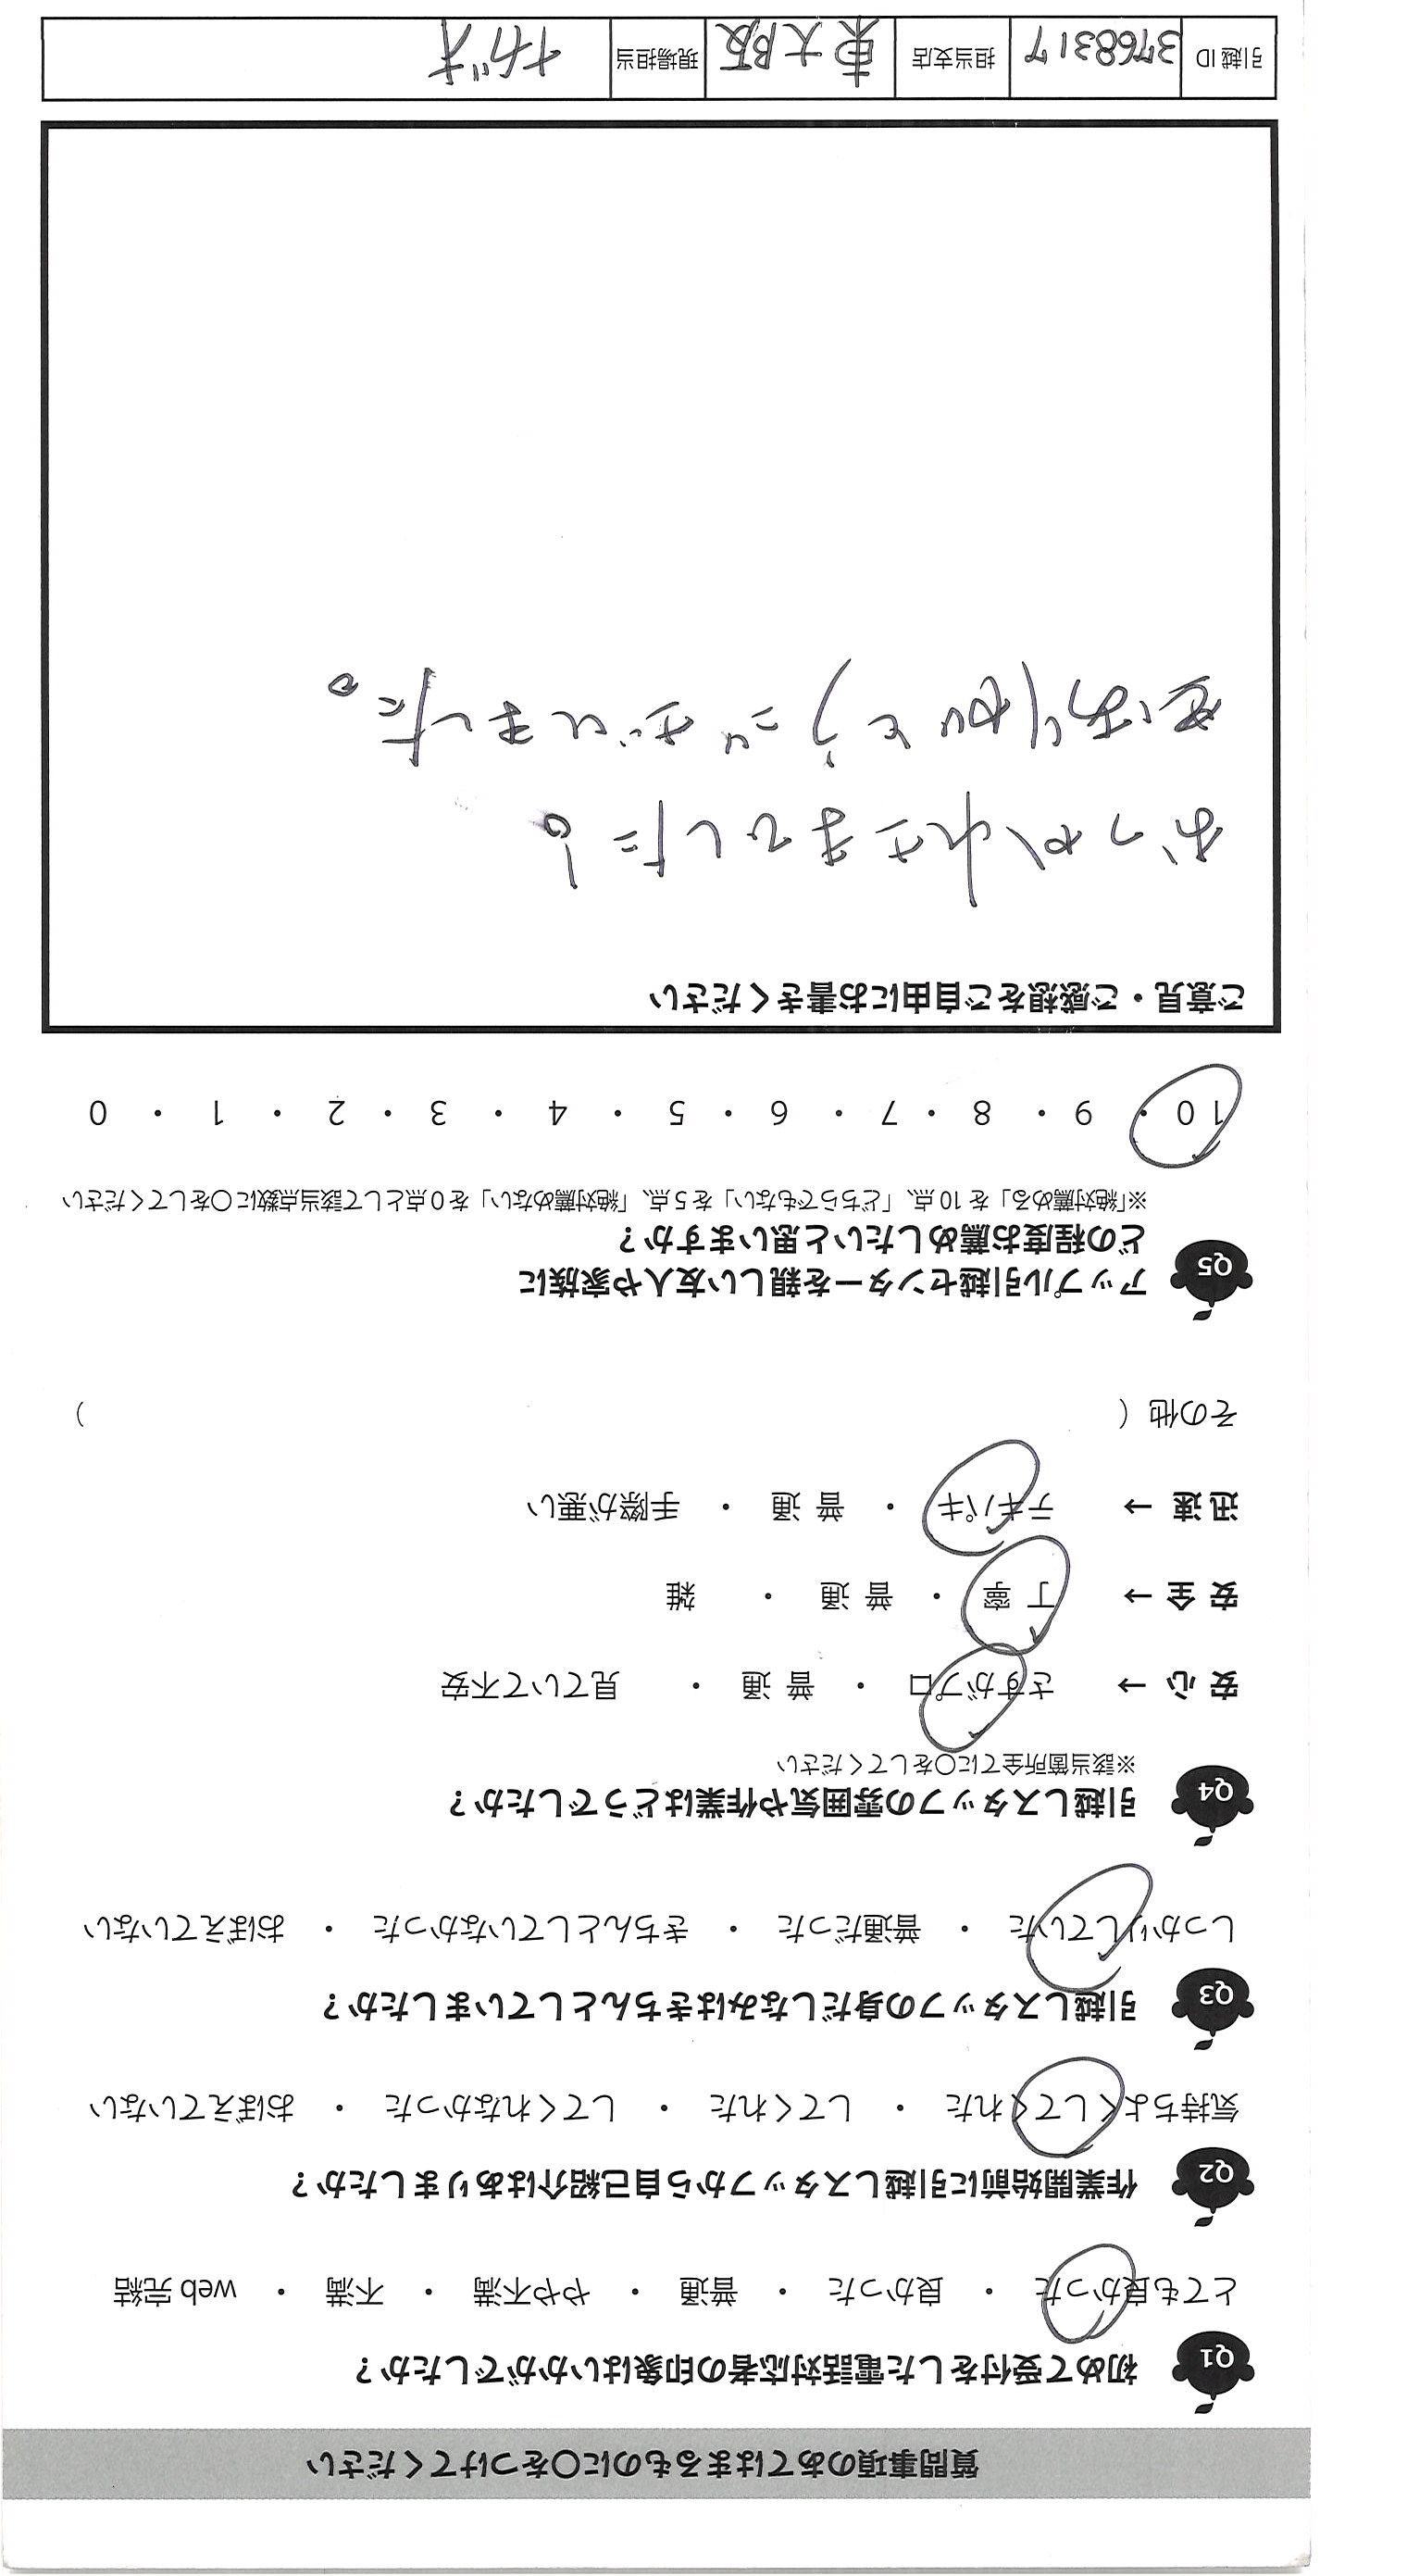 質問事項のあてはまるものに〇をつけてください
Q1 初めて受付をした電話対応者の印象はいかがでしたか？
とても良かった ・ 良かった ・ 普通 ・ やや不満 ・ 不満 ・ web 完結
Q2 作業開始前に引越しスタッフから自己紹介はありましたか？
気持ちよくしてくれた ・ してくれた ・ してくれなかった ・ おぼえていない
Q3 引越しスタッフの身だしなみはきちんとしていましたか？
しっかりしていた ・ 普通だった ・ きちんとしていなかった ・ おぼえていない
Q4 引越しスタッフの雰囲気や作業はどうでしたか？
※該当箇所全てに〇をしてください
安 心 → さすがプロ ・ 普 通 ・ 見ていて不安
安 全 → 丁 寧 ・ 普 通 ・ 雑
迅 速 → テキパキ ・ 普 通 ・ 手際が悪い
その他（ ）
Q5 アップル引越センターを親しい友人や家族に
どの程度お薦めしたいと思いますか？
※「絶対薦める」を 10 点、「どちらでもない」を 5 点、「絶対薦めない」を 0 点として該当点数に〇をしてください
10 ・ 9 ・ 8 ・ 7 ・ 6 ・ 5 ・ 4 ・ 3 ・ 2 ・ 1 ・ 0
ご意見・ご感想をご自由にお書きください
おつかれさまでした!。
ありがとうございました。
引越 ID 3768317 担当支店 東大阪 現場担当 ながオ